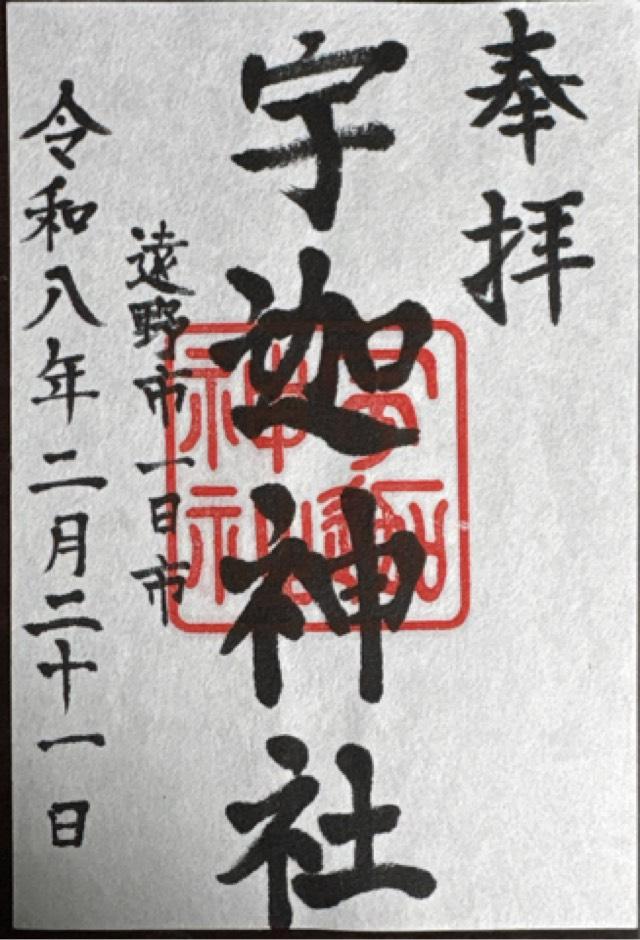 奉拝
宇迦神社
遠野市一日市
令和八年二月二十一日